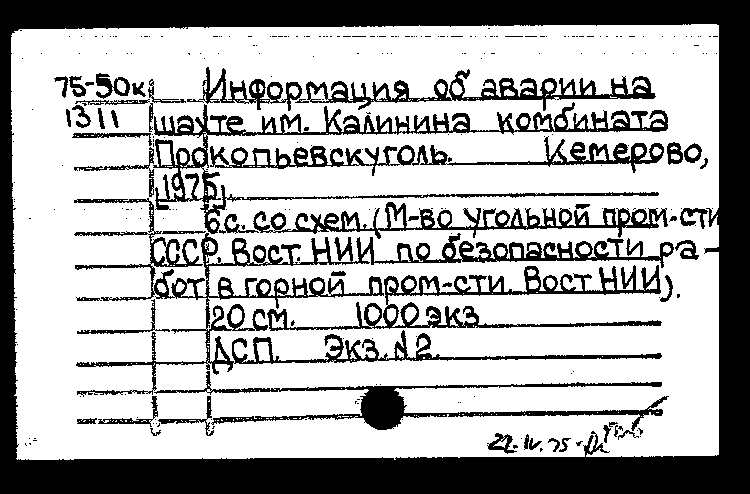 75-50к Информация об аварии на
1311 шахте им. Калинина комбината
Прокопьевскуголь. Кемерово,
[1975]
6с. со схем. (М-во угольной пром-сти
СССР. Вост. НИИ по безопасности ра-
бот в горной пром-сти. Вост НИИ).
20 см. 1000 экз
ДСП. Экз. №2.
22.IV.75